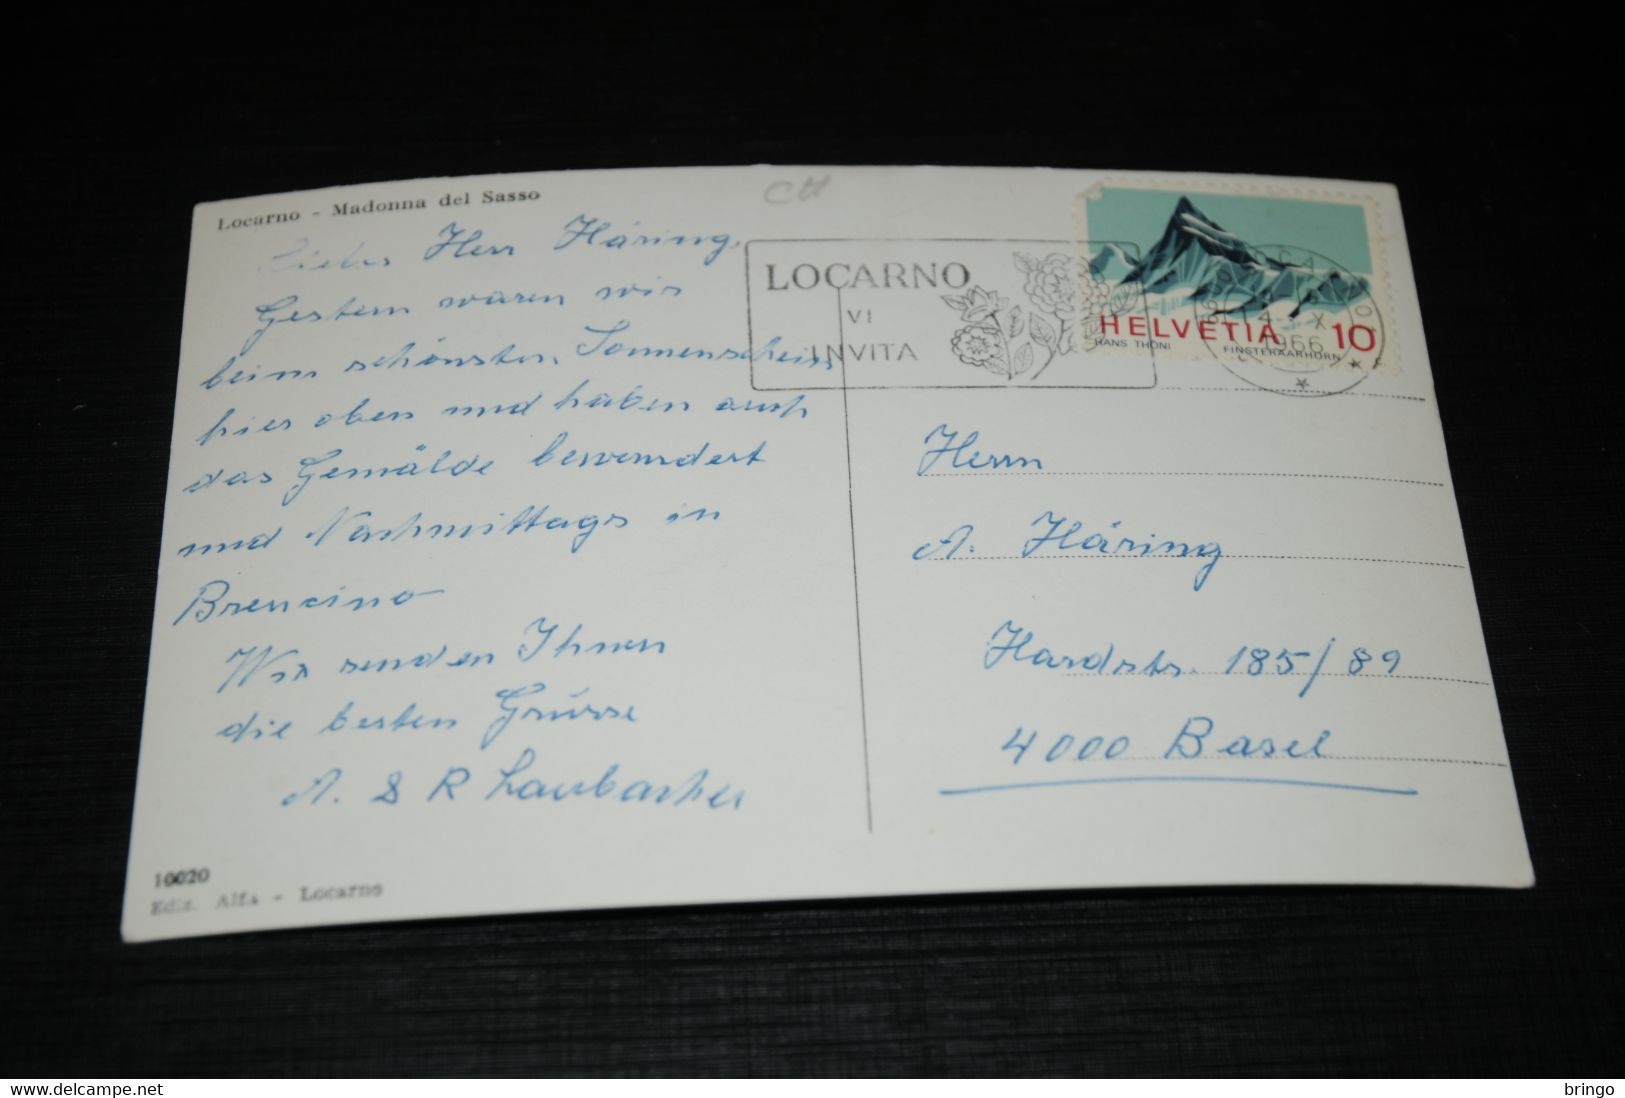 Locarno - Madonna del Sasso
Lieber Herr Häring,
Gestern waren wir
beim schönsten Sonnenschein
hier oben und haben auch
das Gemälde bewundert
und Nachmittags in
Wir senden Ihnen
die besten Grüsse
A. & R Laubacher
10020
Ediz. Alfa - Locarno
LOCARNO
VI
INVITA
HELVETIA 10
HANS THÖNI FINSTERAARHORN
X
1966
Herrn
A. Häring
Hardstr. 185/89
4000 Basel
bringo